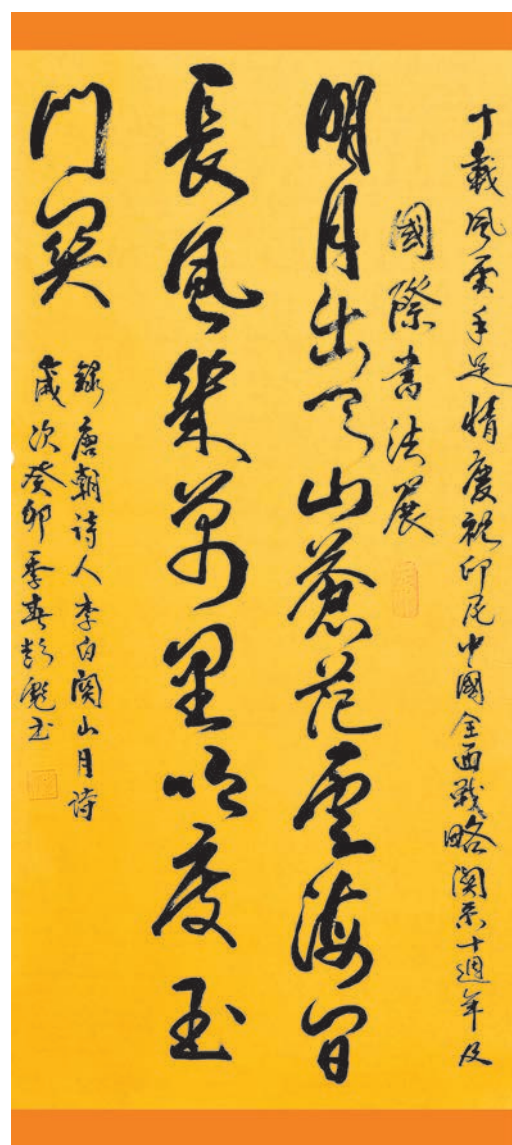 十載風雲手足情慶祝印尼中國全面戰略関系十週年及
國際書法展
明月出天山蒼茫雲海間
長風幾萬里吹度玉
門关
錄唐朝诗人李白関山月诗
歲次癸卯季春彭彪书